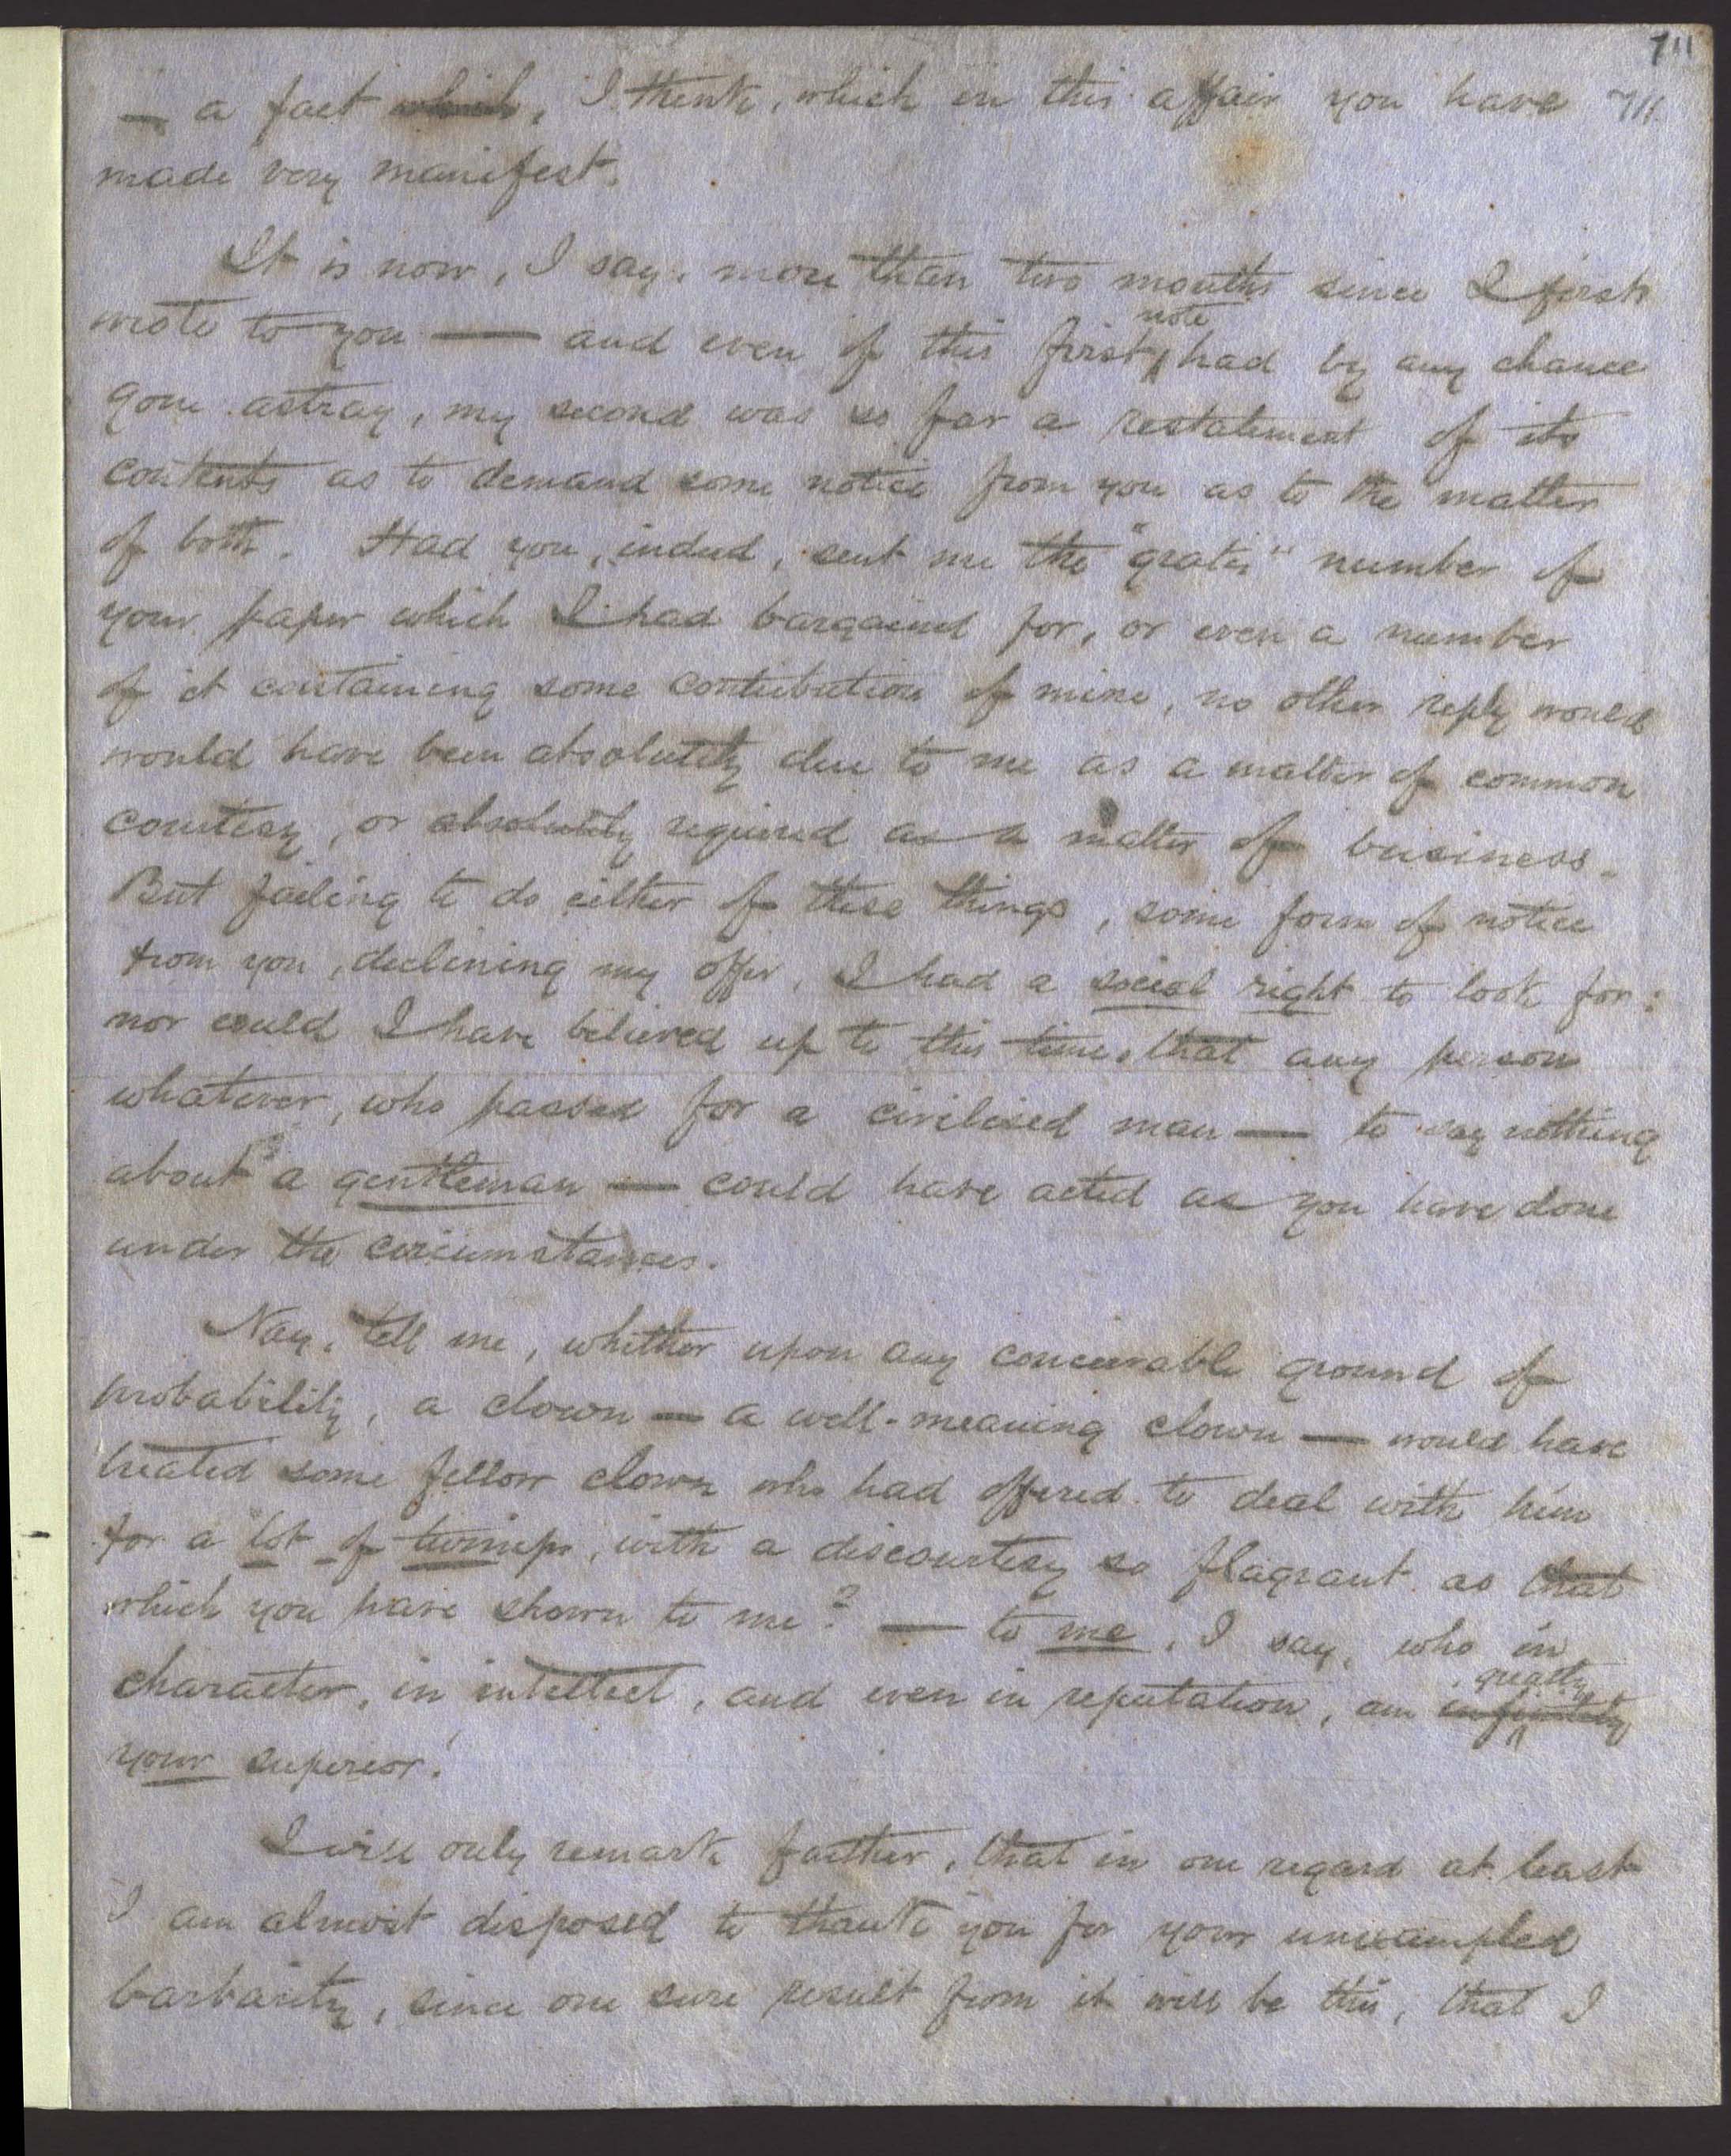 711
— a fact which, I think, which in this affair you have 711.
made very manifest.
It is now, I say, more than two months since I first
wrote to you — and even if this first note had by any chance
gone astray, my second was so far a restatement of its
contents as to demand some notice from you as to the matter
of both. Had you, indeed, sent me the "gratis" number of
your paper which I had bargained for, or even a number
of it containing some contribution of mine, no other reply would
would have been absolutely due to me as a matter of common
courtesy, or absolutely required as a matter of business.
But failing to do either of these things, some form of notice
from you, declining my offer, I had a social right to look for:
nor could I have believed up to this time, that any person
whatever, who passed for a civilised man — to say nothing
about a gentleman — could have acted as you have done
under the circumstances.
Nay, tell me, whether upon any conceivable ground of
probability, a clown — a well-meaning clown — would have
treated some fellow clown who had offered to deal with him
for a lot of turnips, with a discourtesy so flagrant as that
which you have shown to me? — to me, I say, who in
character, in intellect, and even in reputation, am infinitely greatly
your superior!
I will only remark further, that in one regard at least
I am almost disposed to thank you for your unexampled
barbarity, since one sure result from it will be this, that I